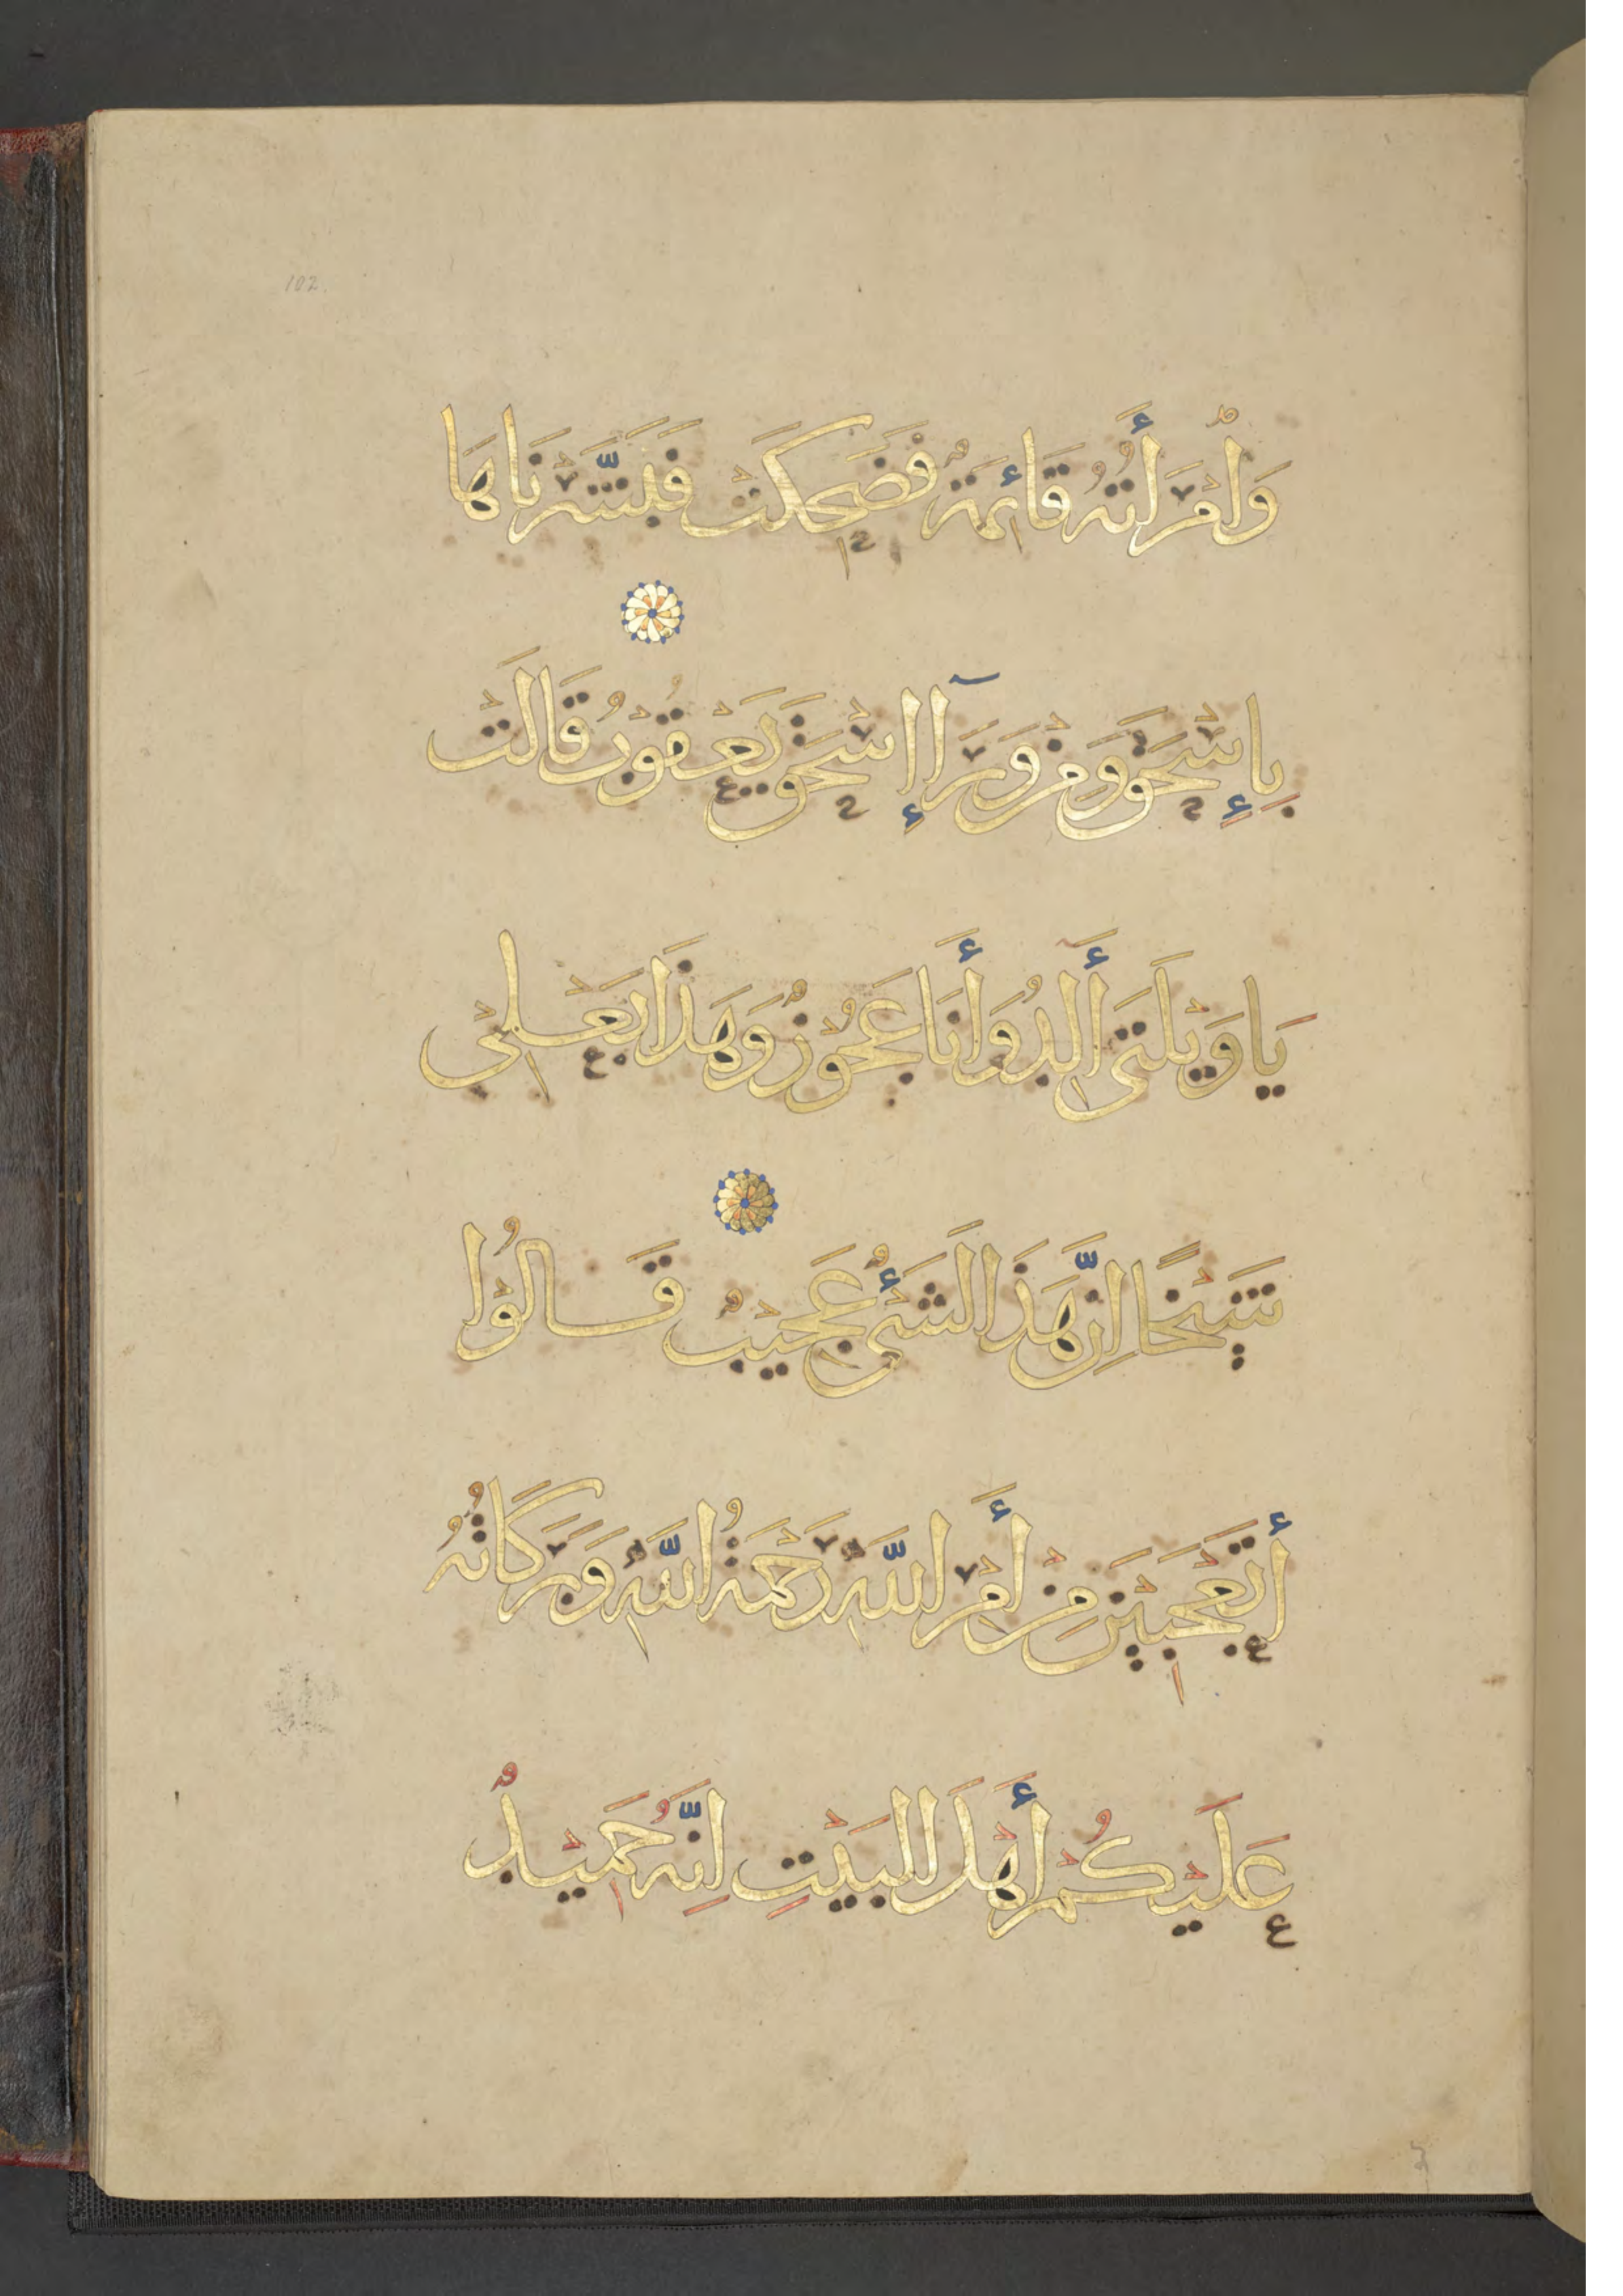 102.
وَامْرَأَتُهُ قَائِمَةٌ فَضَحِكَتْ فَبَشَّرْنَاهَا
بِإِسْحَقَ وَمِنْ وَرَآاِ اِسْحَقَ يَعْقُوبُ قَالَتْ
يَا وَيْلَتَى أَالِدُ وَأَنَا عَجُوْزٌ وَهَذَا بَعْلِيْ
شَيْخًا اِنَّ هَذَا لَشَىْءٌ عَجِيْبٌ قَالُوْا
أَتَعْجَبِيْنَ مِنْ أَمْرِ اللَّهِ رَحْمَتُ اللَّهِ وَبَرَكَاتُهُ
عَلَيْكُمْ أَهْلَ الْبَيْتِ اِنَّهُ حَمِيْدٌ